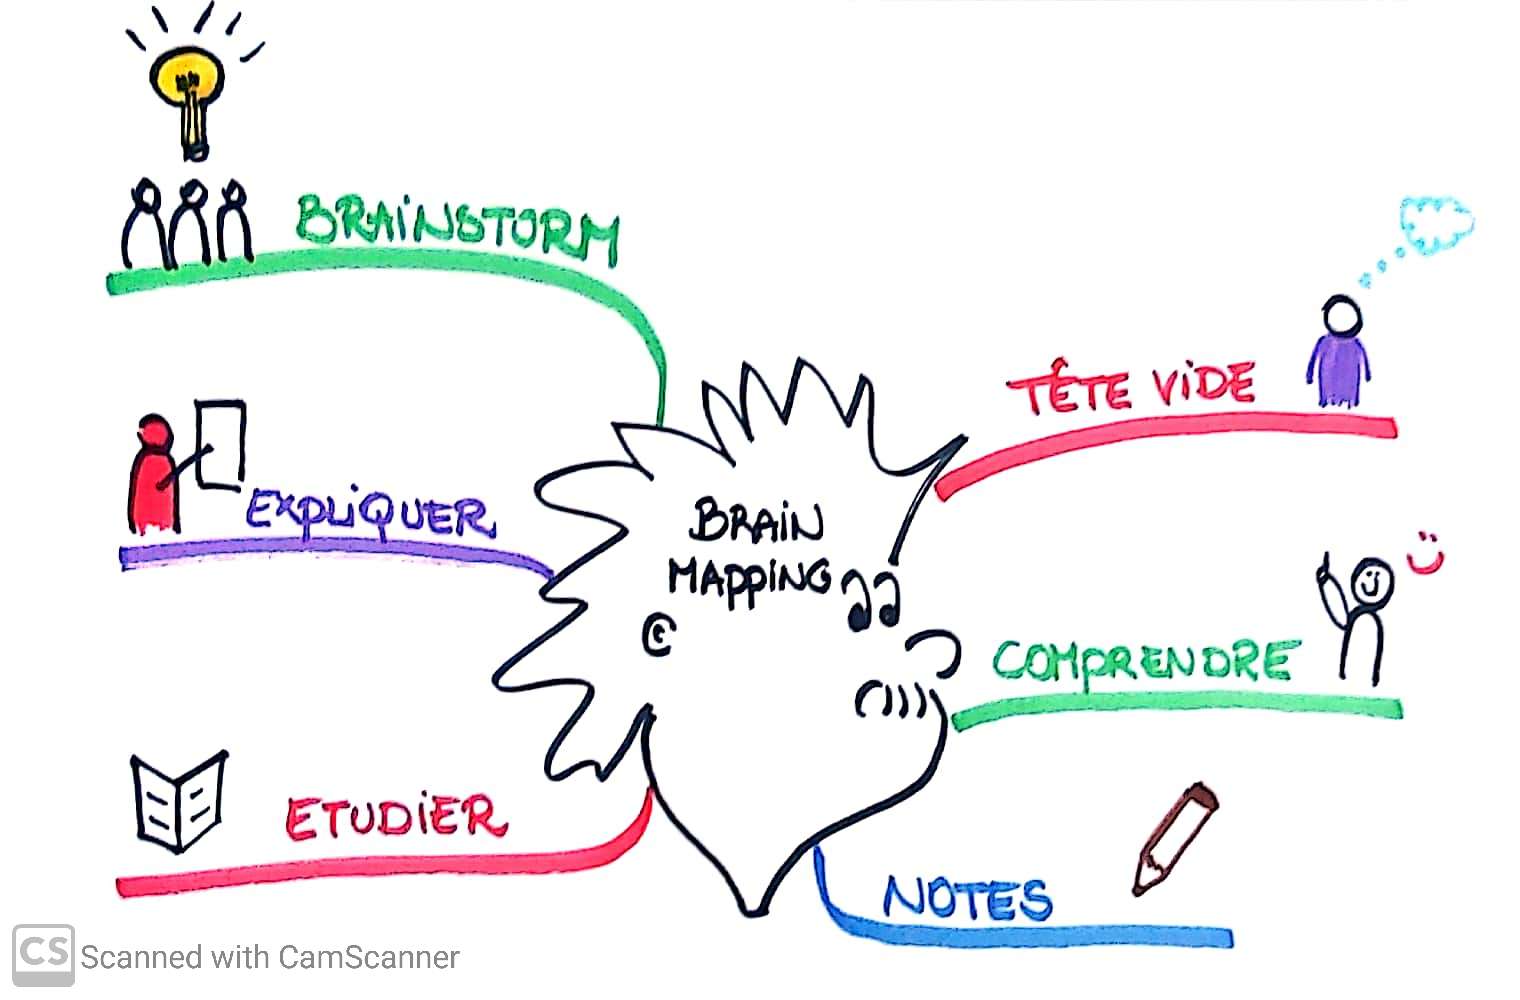 BRAINSTORM
TÊTE VIDE
EXPLIQUER
BRAIN
MAPPING
COMPRENDRE
ETUDIER
NOTES
CS Scanned with CamScanner